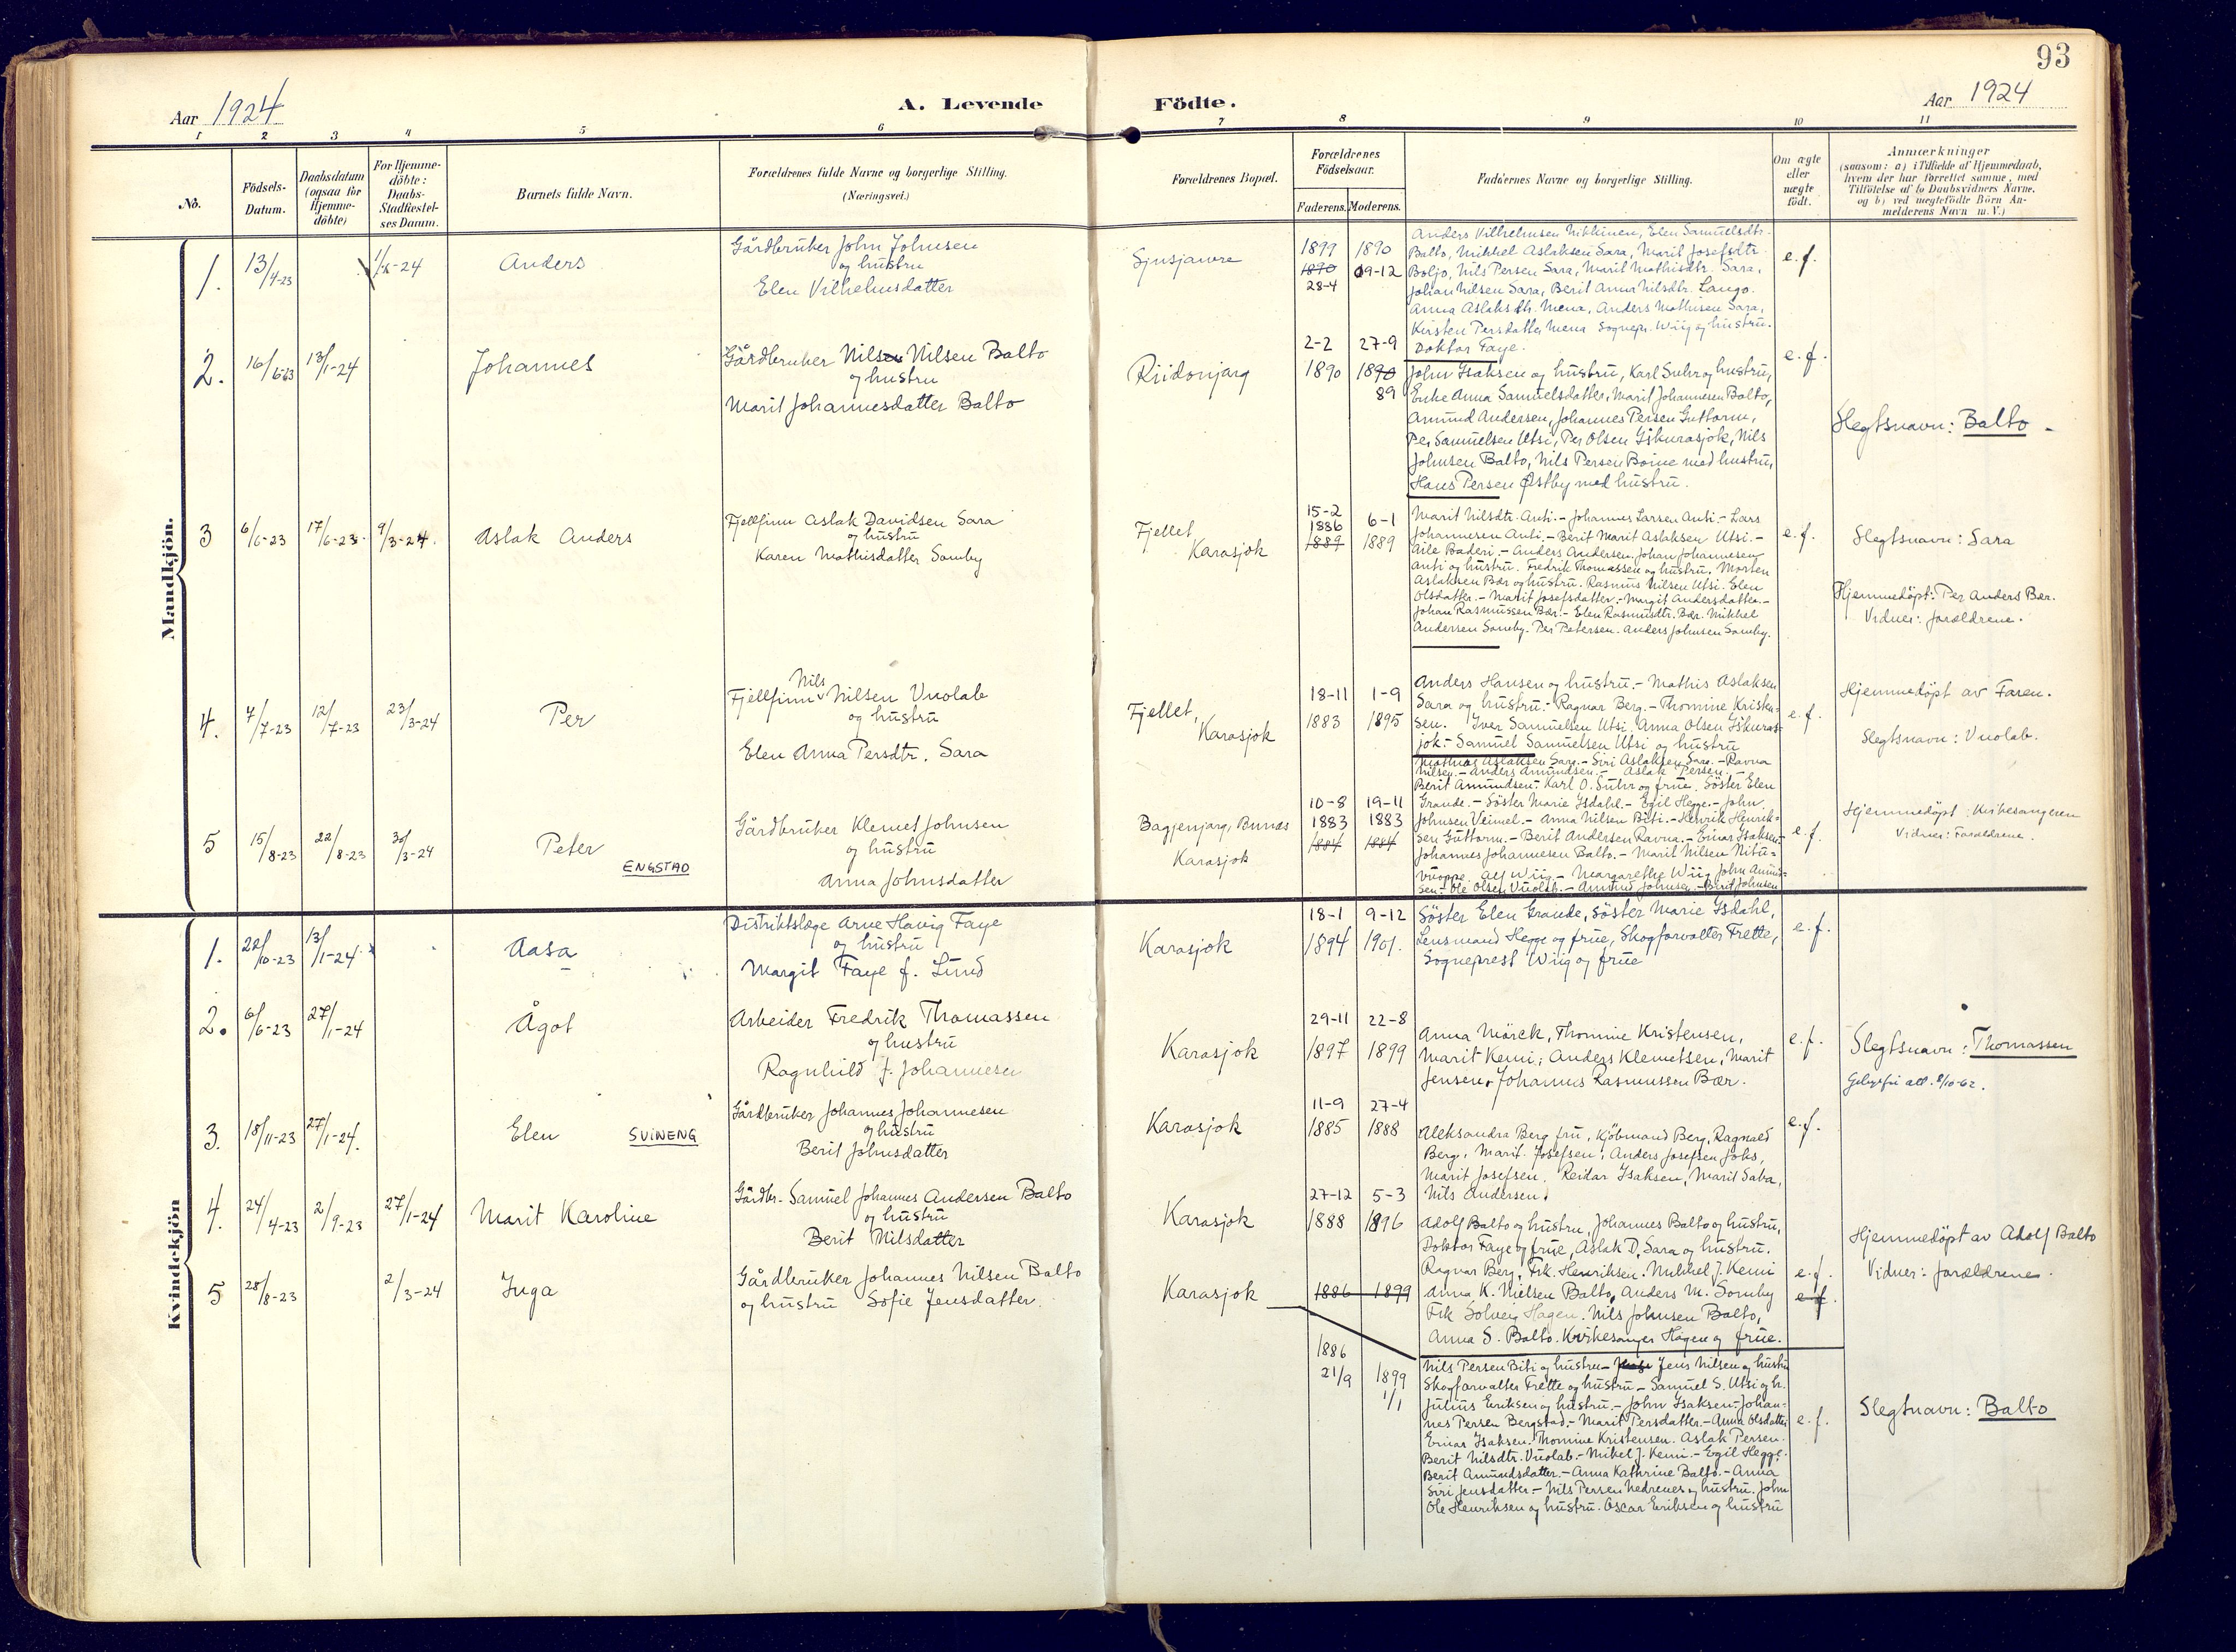 93
Aar 1924
A. Levende Födte.
Aar 1924
1 2 3 4 5 6 7 8 9 10 11
No.
Födsels-
Datum.
Daabsdatum
(ogsaa for
Hjemme-
döbte)
For Hjemme-
döbte:
Daabs-
Stadfæstel-
ses Datum.
Barnets fulde Navn.
Forældrenes fulde Navne og borgerlige Stilling.
(Næringsvei.)
Forældrenes Bopæl.
Forældrenes
Födselsaar.
Faderens. Moderens.
Faddernes Navne og borgerlige Stilling.
Om ægte
eller
uægte
födt.
Anmærkninger
(saasom: a) i Tilfælde af Hjemmedaab,
hvem der har forrettet samme, med
Tilföielse af to Daabsvidners Navne,
og b) ved uegtefödte Börn An-
melderens Navn m. V.)
Mandkjön.
1. 13/4-23 -24 Anders
Gårdbruker John Johnsen
og hustru
Elen Vilhelmsdatter
1899 1890
1890 19-12
28-4
e. f.
Anders Vilhelmsen Nikkinen, Elen Samuelsdtr.
Balto, Mikkel Aslaksen Sara, Marit Josefsdtr.
Boljo, Nils Persen Sara, Marit Mathisdtr. Sara,
Johan Nilsen Sara, Berit Anna Nilsdtr. Lango.
Anna Aslaksdtr. Mena, Anders Mathisen Sara,
Kirsten Persdatter Mena Sognepr. Wiig og hustru.
Doktor Faye.
2. 16/6-23 13/1-24 Johannes
Gårdbruker Nils Nilsen Balto
og hustru
Marit Johannesdatter Balto
Riidonjarg
2-2 27-9
1890 1890
89
e. f.
John Isaksen og hustru, Karl Suhr og hustru,
Enke Anna Samuelsdatter, Marit Johannesen Balto,
Amund Andersen, Johannes Persen Guttorm,
Per Samuelsen Utsi, Per Olsen Iskurasjok, Nils
Johnsen Balto, Nils Persen Boine med hustru,
Hans Persen Østby med hustru.
Slegtsnavn: Balto -
3 6/6-23 17/6-23. 9/3-24. Aslak Anders
Fjellfinn Aslak Davidsen Sara
og hustru
Karen Mathisdatter Somby
Fjellet
Karasjok
15-2
1886 6-1
1889 1889
e. f.
Marit Nilsdtr. Anti. - Johannes Larsen Anti. - Lars
Johannesen Anti. - Berit Marit Aslaksen Utsi. -
Aile Baderi. - Anders Andersen. Johan Johannesen
Anti og hustru. Fredrik Thomassen og hustru. Morten
Aslaksen Bær og hustru. Rasmus Nilsen Utsi. Elen
Olsdatter. - Marit Josefsdatter. - Margit Andersdatter. -
Johan Rasmussen Bær. - Elen Rasmusdtr. Bær. Mikkel
Andersen Somby. Per Petersen. Anders Johnsen Somby.
Slegtsnavn: Sara
Hjemmedöpt: Per Anders Bær.
Vidner: forældrene.
4. 7/7-23 12/7-23 23/3-24 Per
Nils
Fjellfinn Nilsen Vuolab
og hustru
Elen Anna Persdtr. Sara
Fjellet,
Karasjok
18-11 1-9
1883 1895
e. f.
Anders Hansen og hustru. - Mathis Aslaksen
Sara og hustru. - Ragnar Berg. - Thomine Kristen-
sen. Iver Samuelsen Utsi. Anna Olsen Iskuras-
jok. - Samuel Samuelsen Utsi og hustru
Hjemmedöpt av Faren.
Slegtsnavn: Vuolab.
5 15/8-23 22/8-23 30/3-24 Peter
ENGSTAD
Gårdbruker Klemet Johnsen
og hustru
Anna Johnsdatter
Bagjenjarg, Bunas
Karasjok
10-8 19-11
1883 1883
1884 1884
e. f.
Mathis Aslaksen Sara. - Siri Aslaksen Sara. - Ravna
Nilsen. - Anders Amundsen. - Aslak Persen. -
Berit Amundsen. Karl O. Suhr og frue. Söster Elen
Grande. - Söster Marie Isdahl. - Egil Hegge. - John
Johnsen Veimel. - Anna Nilsen Biti. - Henrik Henrik-
sen Guttorm. - Berit Andersen Ravna. - Einar Isaksen.
Johannes Johannesen Balto. - Marit Nilsen Nitu-
vuoppe. Alf Wiig - Margarethe Wiig John Amund-
sen. - Ole Olsen Vuolab. - Amund Johnsen - Berit Johnsen
Hjemmedöpt: Kirkesangeren
Vidner: Forældrene.
Kvindekjön
1. 22/10-23 13/1-24 Aasa
Distriktslæge Arne Havig Faye
og hustru
Margit Faye f. Lund
Karasjok
18-1 9-12
1894 1901.
e. f.
Söster Elen Grande, Söster Marie Isdahl,
Lensmand Hegge og frue, Skogforvalter Frette,
Sogneprest Wiig og frue
2. 6/6-23 27/1-24 Ågot
Arbeider Fredrik Thomassen
og hustru
Ragnhild f. Johannesen
Karasjok
29-11 22-8
1897 1899
e. f.
Anna Mörck, Thomine Kristensen,
Marit Kemi, Anders Klemetsen, Marit
Jensen, Johannes Rasmussen Bær.
Slegtsnavn: Thomassen
8/10-62.
3. 18/11-23 27/1-24. Elen SVINENG
Gårdbruker Johannes Johannesen
og hustru
Berit Johnsdatter
Karasjok
11-9 27-4
1885 1888
e. f.
Aleksandra Berg fru, Kjöbmand Berg, Ragnald
Berg, Marit Josefsen, Anders Josefsen Joks,
Marit Josefsen. Reidar Isaksen, Marit Saba,
Nils Andersen.
4. 24/4-23 2/9-23 27/1-24 Marit Karoline
Gårdbr. Samuel Johannes Andersen Balto
og hustru
Berit Nilsdatter
Karasjok
27-12 5-3
1888 1896
e. f.
Adolf Balto og hustru, Johannes Balto og hustru,
Doktor Faye og frue, Aslak D. Sara og hustru.
Ragnar Berg, Frk. Henriksen. Mikkel J. Kemi
Anna K. Nielsen Balto, Anders M. Somby
Frk Solveig Hagen. Nils Johnsen Balto,
Anna S. Balto. Kirkesanger Hagen og frue.
Hjemmedöpt av Adolf Balto
Vidner: forældrene.
5 28/8-23 2/3-24 Inga
Gårdbruker Johannes Nilsen Balto
og hustru Sofie Jensdatter.
Karasjok
1886 1899
e f.
1886
21/9 1899
1/1
e. f.
Nils Persen Biti og hustru - Jens Nilsen og hustru
Skogforvalter Frette og hustru - Samuel S. Utsi og h.
Julius Eriksen og hustru. - John Isaksen - Johan-
nes Persen Bergstad. - Marit Persdatter. - Anna Olsdatter
Einar Isaksen. Thomine Kristensen. Aslak Persen.
Berit Nilsdtr. Vuolab. - Mikel J. Kemi. - Egil Hegge.
Berit Amundsdatter. - Anna Kathrine Balto. - Anna
Siri Jensdatter - Nils Persen Nedrenes og hustru. John
Ole Henriksen og hustru. Oscar Eriksen og hustru
Slegtnavn: Balto